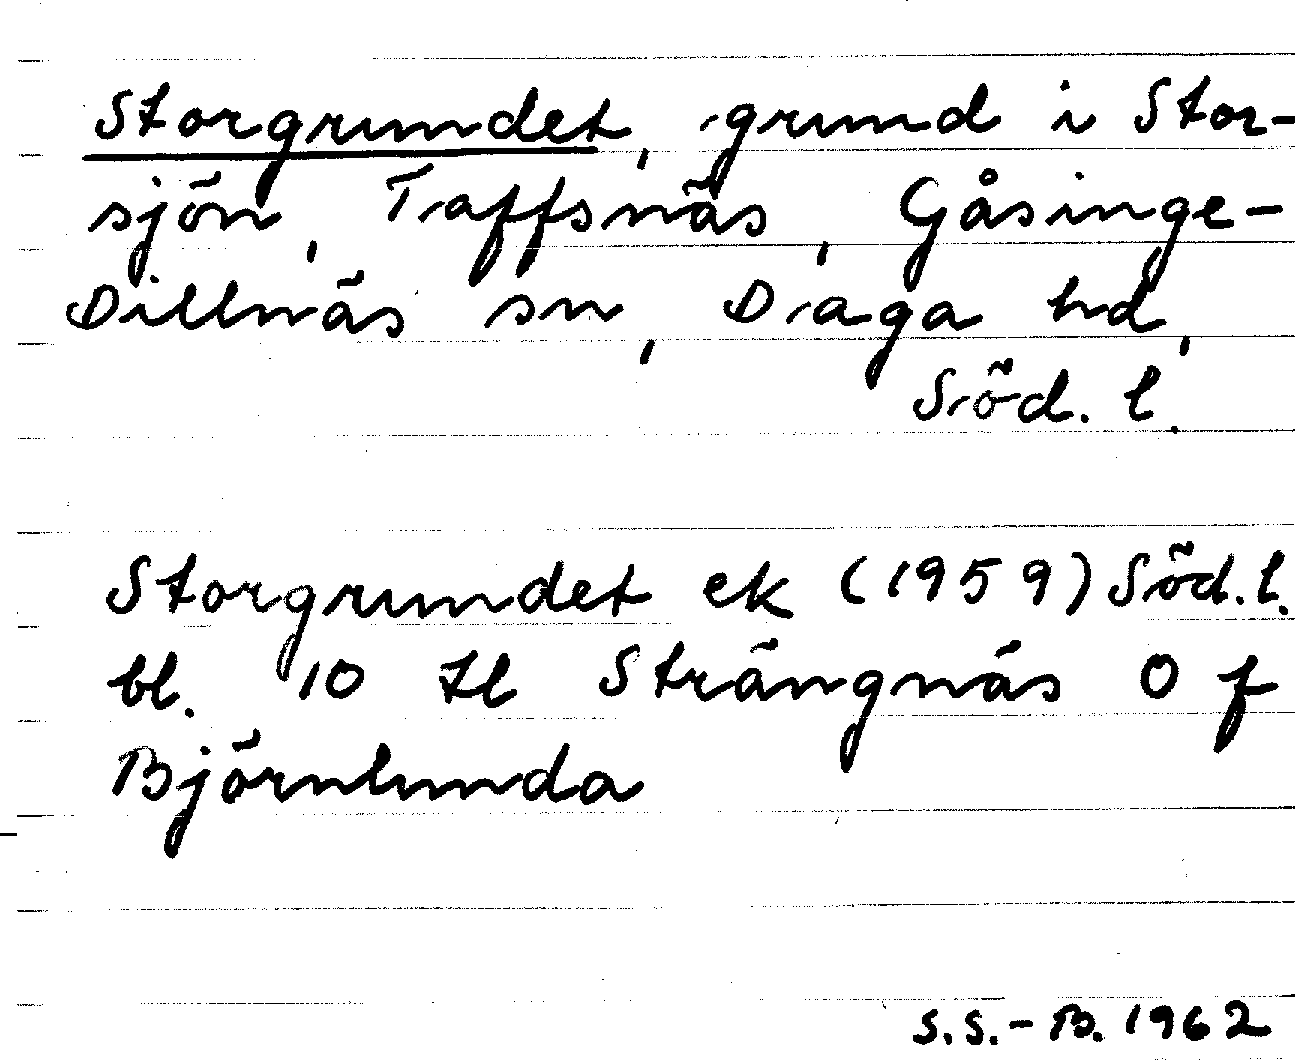 Storgrundet, grund i Stor-
sjön, Taffsnäs, Gåsinge-
Dillnäs sn, Daga hd,
Söd. l.
Storgrundet ek (1959) Söd. l.
bl. 10 tl Strängnäs O f
Björnlunda
S.S.-B. 1962